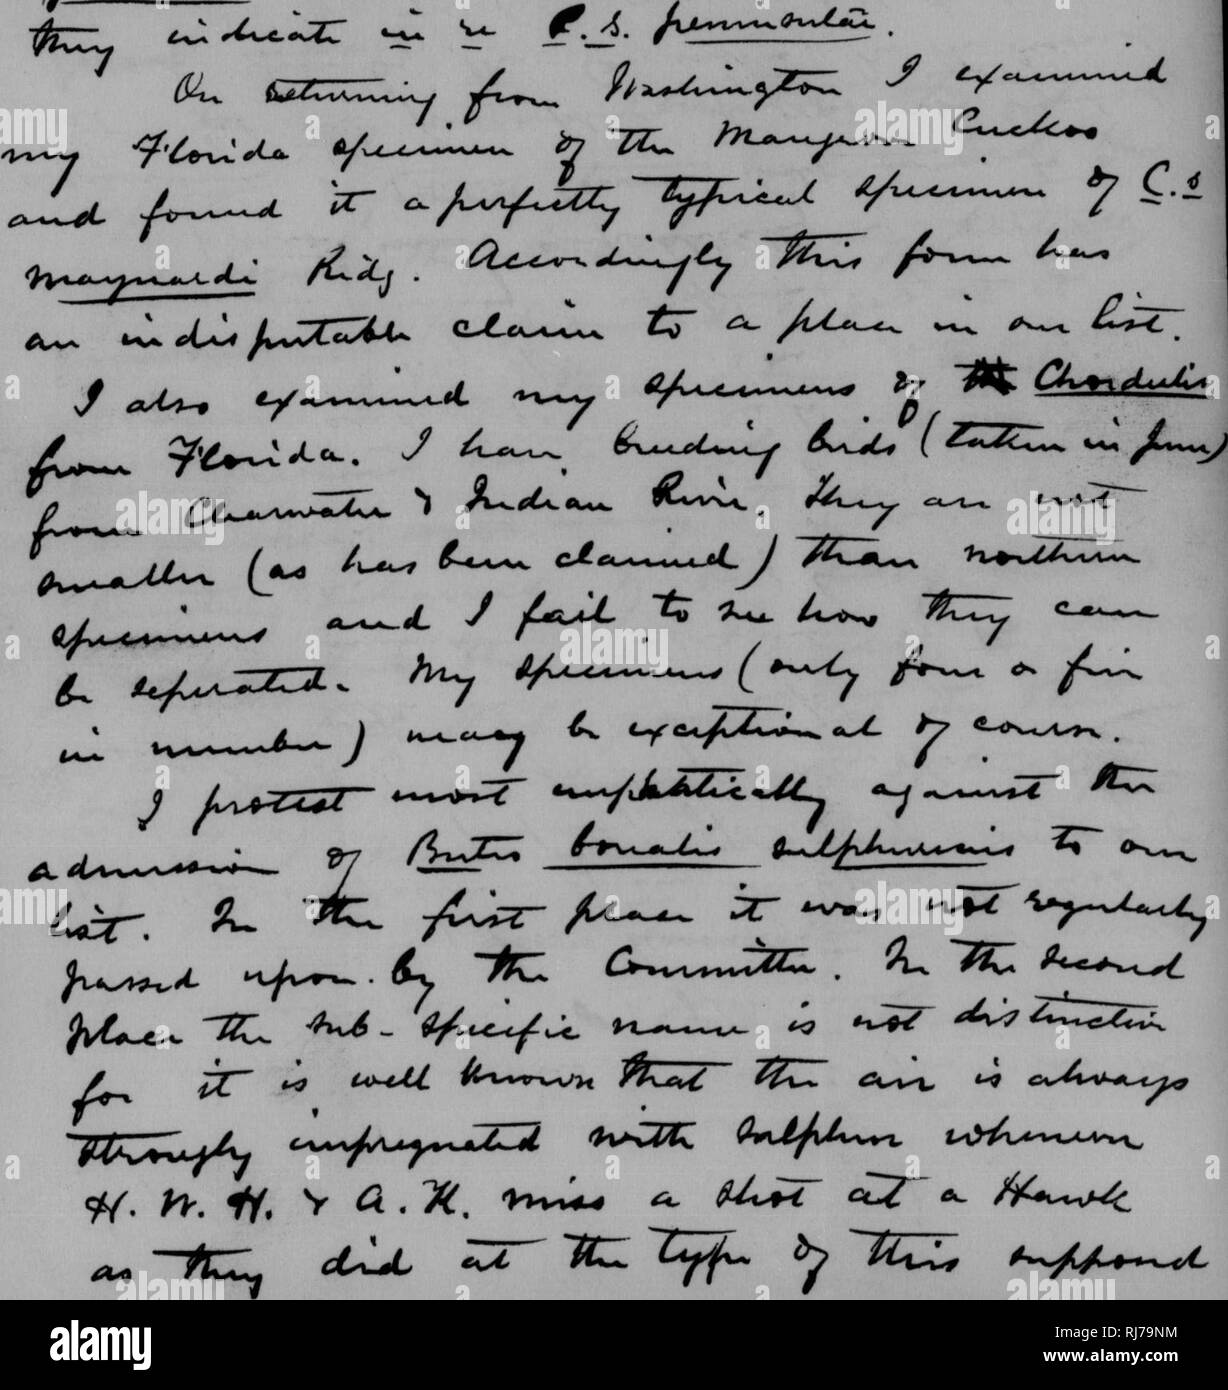 they indicate in re C. s. peninsulae.
On returning from Washington I examined
my Florida specimen of the Mangrove Cuckoo
and found it a perfectly typical specimen of C. s
maynardi Ridg. Accordingly this form has
an indisputable claim to a place in our list.
I also examined my specimens of the Chordeiles
from Florida. I have breeding birds (taken in June)
from Clearwater & Indian River. They are not
smaller (as has been claimed) than northern
specimens and I fail to see how they can
be seperated. My specimens (only four or five
in number) may be exceptional of course.
I protest most emphatically against the
admission of Buteo borealis sulphureus to our
list. In the first place it was not regularly
passed upon by the Committee. In the second
place the sub-specific name is not distinctive
for it is well known that the air is always
strongly impregnated with sulphur whenever
H. W. H. & A. K. miss a shot at a Hawk
as they did at the type of this supposed
alamy
Image ID: RJ79NM
www.alamy.com